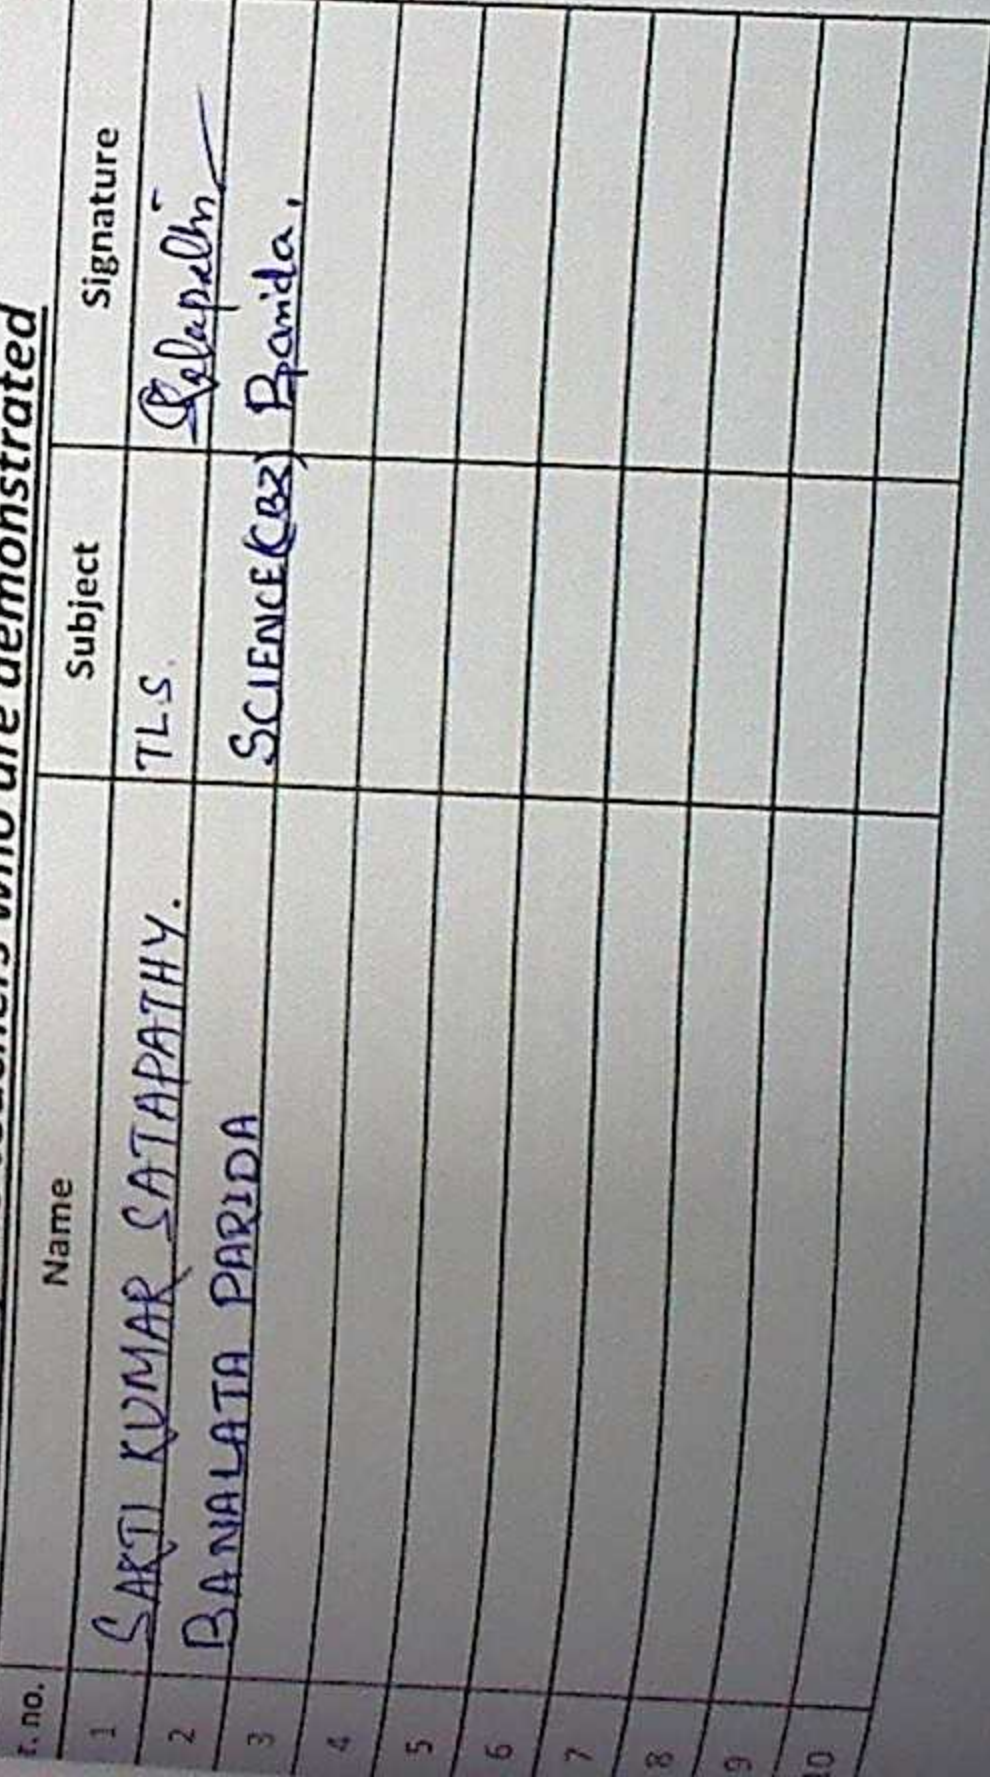 who are demonstrated
r. no. Name Subject Signature
1 SAKTI KUMAR SATAPATHY. TLS.
2 BANALATA PARIDA SCIENCE(CBZ) Parida.
3
4
5
6
7
8
9
10